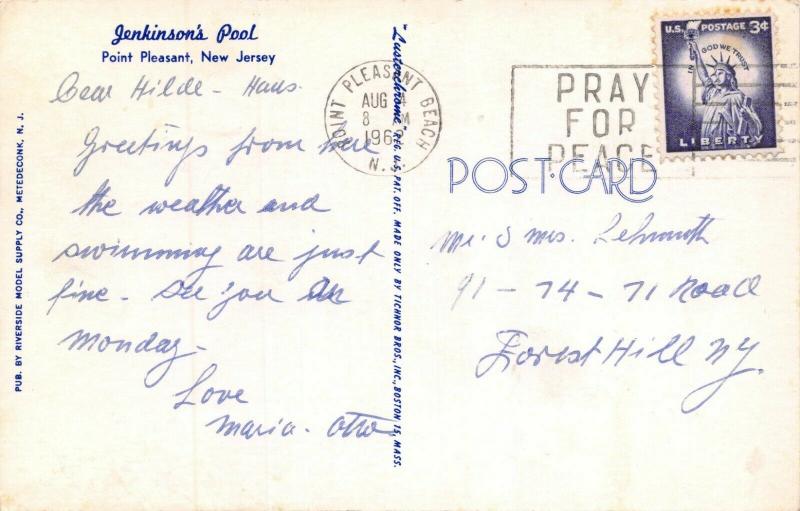 Jenkinson's Pool
Point Pleasant, New Jersey
Dear Hilde - Hans
Greetings from here
the weather and
swimming are just
fine - See you on
Monday -
Love
Maria - Otto
PUB. BY RIVERSIDE MODEL SUPPLY CO., METEDECONK, N. J.
"Lusterchrome" REG. U.S. PAT. OFF. MADE ONLY BY TICHNOR BROS., INC., BOSTON 15, MASS.
POINT PLEASANT BEACH
AUG
8 M
196
N.J.
PRAY
FOR
PEACE
U.S. POSTAGE 3¢
IN GOD WE TRUST
LIBERTY
POST CARD
Mr. & Mrs.
91 - 74 - 71 Road
Forest Hill NY.